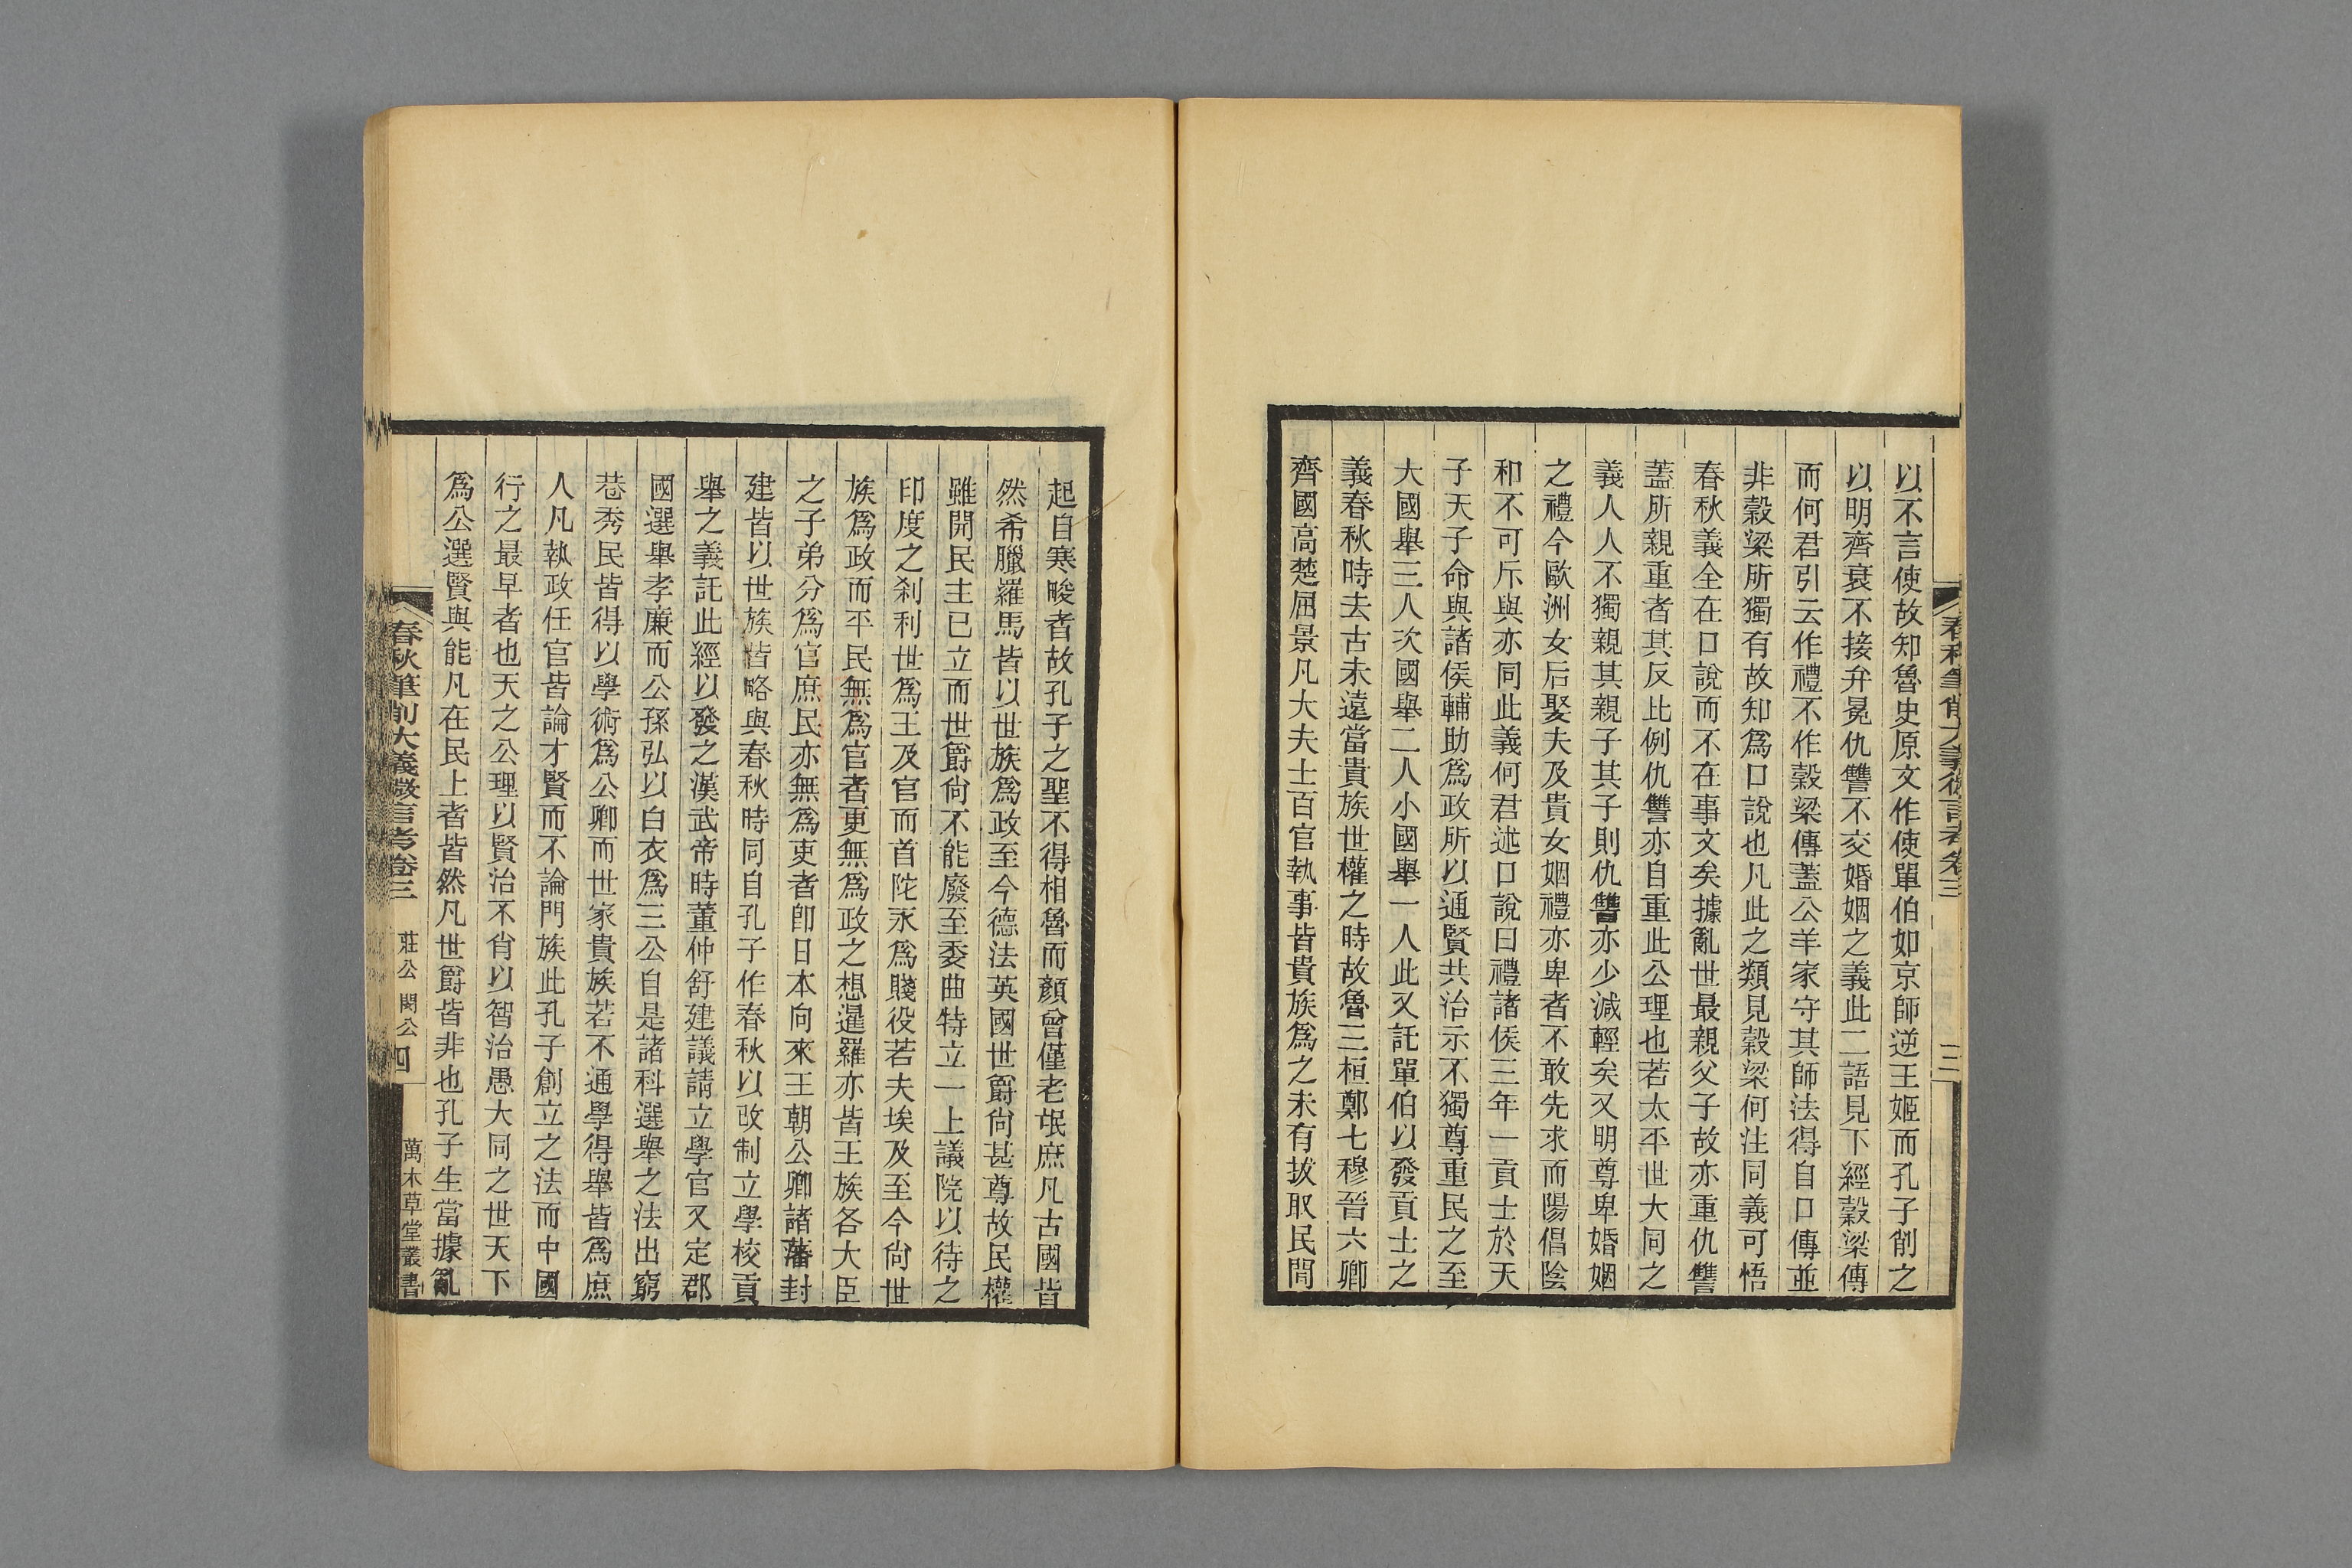 春秋筆削大義微言考卷三
三
以不言使故知魯史原文作使單伯如京師逆王姬而孔子削之
以明齊衰不接弁冕仇讐不交婚姻之義此二語見下經穀梁傳
而何君引云作禮不作穀梁傳蓋公羊家守其師法得自口傳並
非穀梁所獨有故知爲口說也凡此之類見穀梁何注同義可悟
春秋義全在口說而不在事文矣據亂世最親父子故亦重仇讐
蓋所親重者其反比例仇讐亦自重此公理也若太平世大同之
義人人不獨親其親子其子則仇讐亦少減輕矣又明尊卑婚姻
之禮今歐洲女后娶夫及貴女姻禮亦卑者不敢先求而陽倡陰
和不可斥與亦同此義何君述口說曰禮諸侯三年一貢士於天
子天子命與諸侯輔助爲政所以通賢共治示不獨尊重民之至
大國舉三人次國舉二人小國舉一人此又託單伯以發貢士之
義春秋時去古未遠當貴族世權之時故魯三桓鄭七穆晉六卿
齊國高楚屈景凡大夫士百官執事皆貴族爲之未有拔取民間
起自寒畯者故孔子之聖不得相魯而顏曾僅老氓庶凡古國皆
然希臘羅馬皆以世族爲政至今德法英國世爵尙甚尊故民權
雖開民主已立而世爵尙不能廢至委曲特立一上議院以待之
印度之刹利世爲王及官而首陀永爲賤役若夫埃及至今尙世
族爲政而平民無爲官者更無爲政之想暹羅亦皆王族各大臣
之子弟分爲官庶民亦無爲吏者卽日本向來王朝公卿諸藩封
建皆以世族皆略與春秋時同自孔子作春秋以改制立學校貢
舉之義託此經以發之漢武帝時董仲舒建議請立學官又定郡
國選舉孝廉而公孫弘以白衣爲三公自是諸科選舉之法出窮
巷秀民皆得以學術爲公卿而世家貴族若不通學得舉皆爲庶
人凡執政任官皆論才賢而不論門族此孔子創立之法而中國
行之最早者也天之公理以賢治不肖以智治愚大同之世天下
爲公選賢與能凡在民上者皆然凡世爵皆非也孔子生當據亂
春秋筆削大義微言考卷三 莊公 閔公 四 萬木草堂叢書